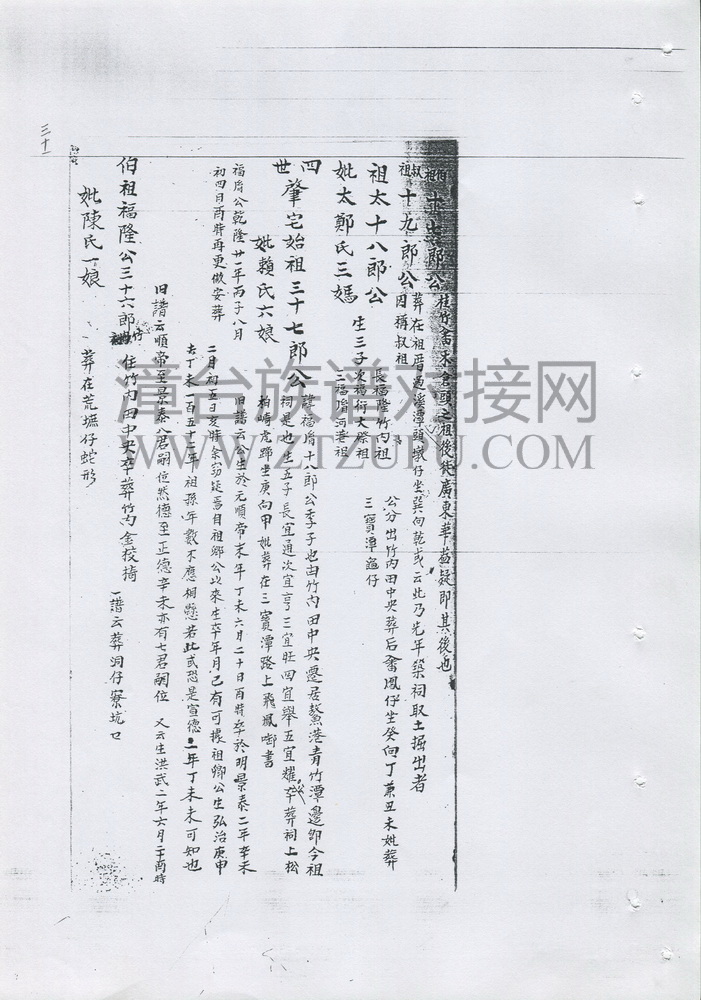 三十一
伯祖 十七郎公 在竹畬水倉頭之祖後徙廣東華益疑即其後也
叔祖 十九郎公 葬在祖厝邊溪潭頭墩仔坐巽向乾或云此乃先年築祠取土掘出者
因稱叔祖
祖太十八郎公
公分出竹內田中央葬后畬鳳仔坐癸向丁兼丑未妣葬
三寶潭龜仔
妣太鄭氏三媽
生三子 長福隆竹內祖
次福衍大祭祖
三福脩河港祖
四世 肇宅始祖三十七郎公
諱福脩十八郎公季子也由竹內田中央遷居鰲港青竹潭邊即今祖
祠是也生五子長宜通次宜亨三宜旺四宜舉五宜耀卒葬祠上松
妣賴氏六娘
柏崎虎蹄坐庚向甲妣葬在三寶潭路上飛鳳啣書
福脩公乾隆廿一年丙子八月
初四日酉時再更做安葬
旧譜云公生於元順帝末年丁未六月二十日酉時卒於明景泰二年辛未
二月初五日亥時余窃疑焉自祖鄉公以來生卒年月已有可據祖鄉公生弘治庚申
去丁未一百五十二年祖孫年數不應相懸若此或恐是宣德二年丁未未可知也
旧譜云順帝至景泰八君嗣位然德至正德辛未亦有七君嗣位 又云生洪武二年六月二十酉時
伯祖福隆公三十六郎
住竹內田中央卒葬竹內金交椅
一譜云葬洞仔寮坑口
妣陳氏一娘
葬在荒墟仔蛇形
漳台族谱对接网
WWW.ZTZUPU.COM